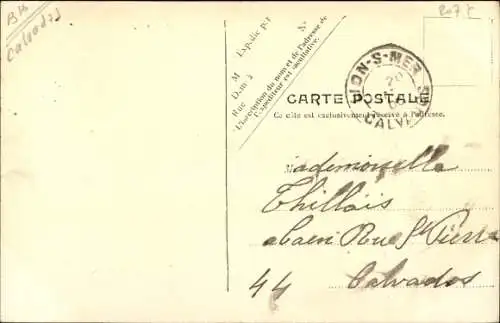 B14
Calvados
207 C
Expédié par
N°
M
Dem t à
Rue
L'inscription du nom et de l'adresse de
l'expéditeur est facultative.
LION-S-MER
20
CALVADOS
CARTE POSTALE
Ce côté est exclusivement réservé à l'adresse.
Mademoiselle
Thillais
a Caen Rue St Pierre
44 Calvados